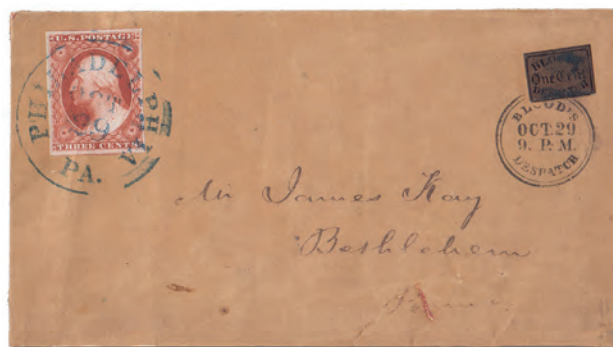 U.S. POSTAGE
THREE CENTS
PHILADELPHIA
OCT
29
PA.
BLOOD'S
One Cent
DESPATCH
BLOOD'S
OCT.29
9. P.M.
DESPATCH
Mr James Kay
Bethlehem